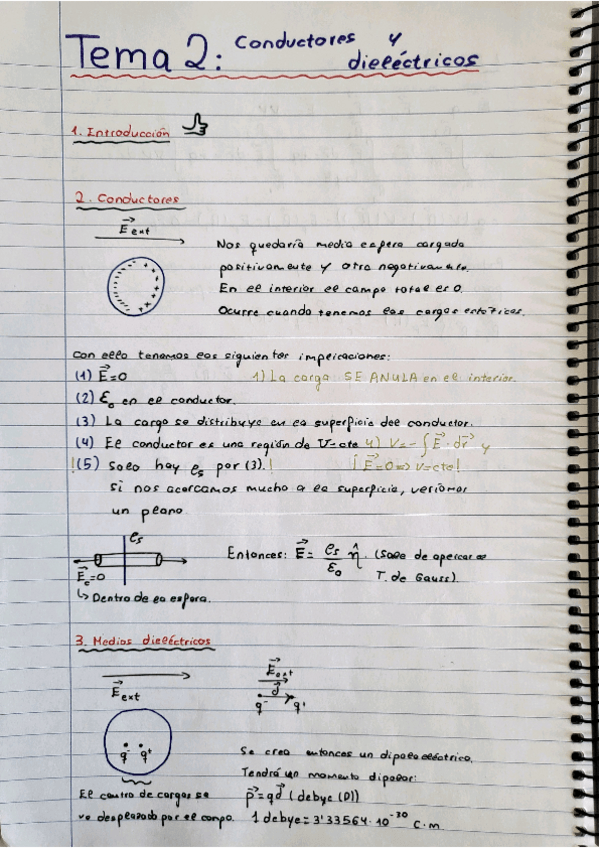 Tema 2: Conductores y dieléctricos
1. Introducción
2. Conductores
E ext
Nos quedaría media esfera cargada
positivamente y otra negativamente.
En el interior el campo total es 0.
Ocurre cuando tenemos las cargas estáticas.
Con ello tenemos las siguientes implicaciones:
(1) E⃗=0 1) La carga SE ANULA en el interior.
(2) ε₀ en el conductor.
(3) La carga se distribuye en la superficie del conductor.
(4) El conductor es una región de V=cte 4) V=-∫E⃗·dr⃗ y
!(5) Solo hay ρs por (3).! ¡E⃗=0 => V=cte!
Si nos acercamos mucho a la superficie, veríamos
un plano.
ρs
Entonces: E⃗ = ρs/ε₀ n̂. (Sale de aplicar el
T. de Gauss)
E⃗c=0
↳ Dentro de la esfera.
3. Medios dieléctricos
E⃗ext
E⃗ext
d⃗
q⁻ q⁺
q⁻ q⁺
Se crea entonces un dipolo eléctrico.
Tendrá un momento dipolar:
El centro de cargas se p⃗=qd⃗ (debye (D))
ve desplazado por el campo. 1 debye = 3'33564·10⁻³⁰ C·m